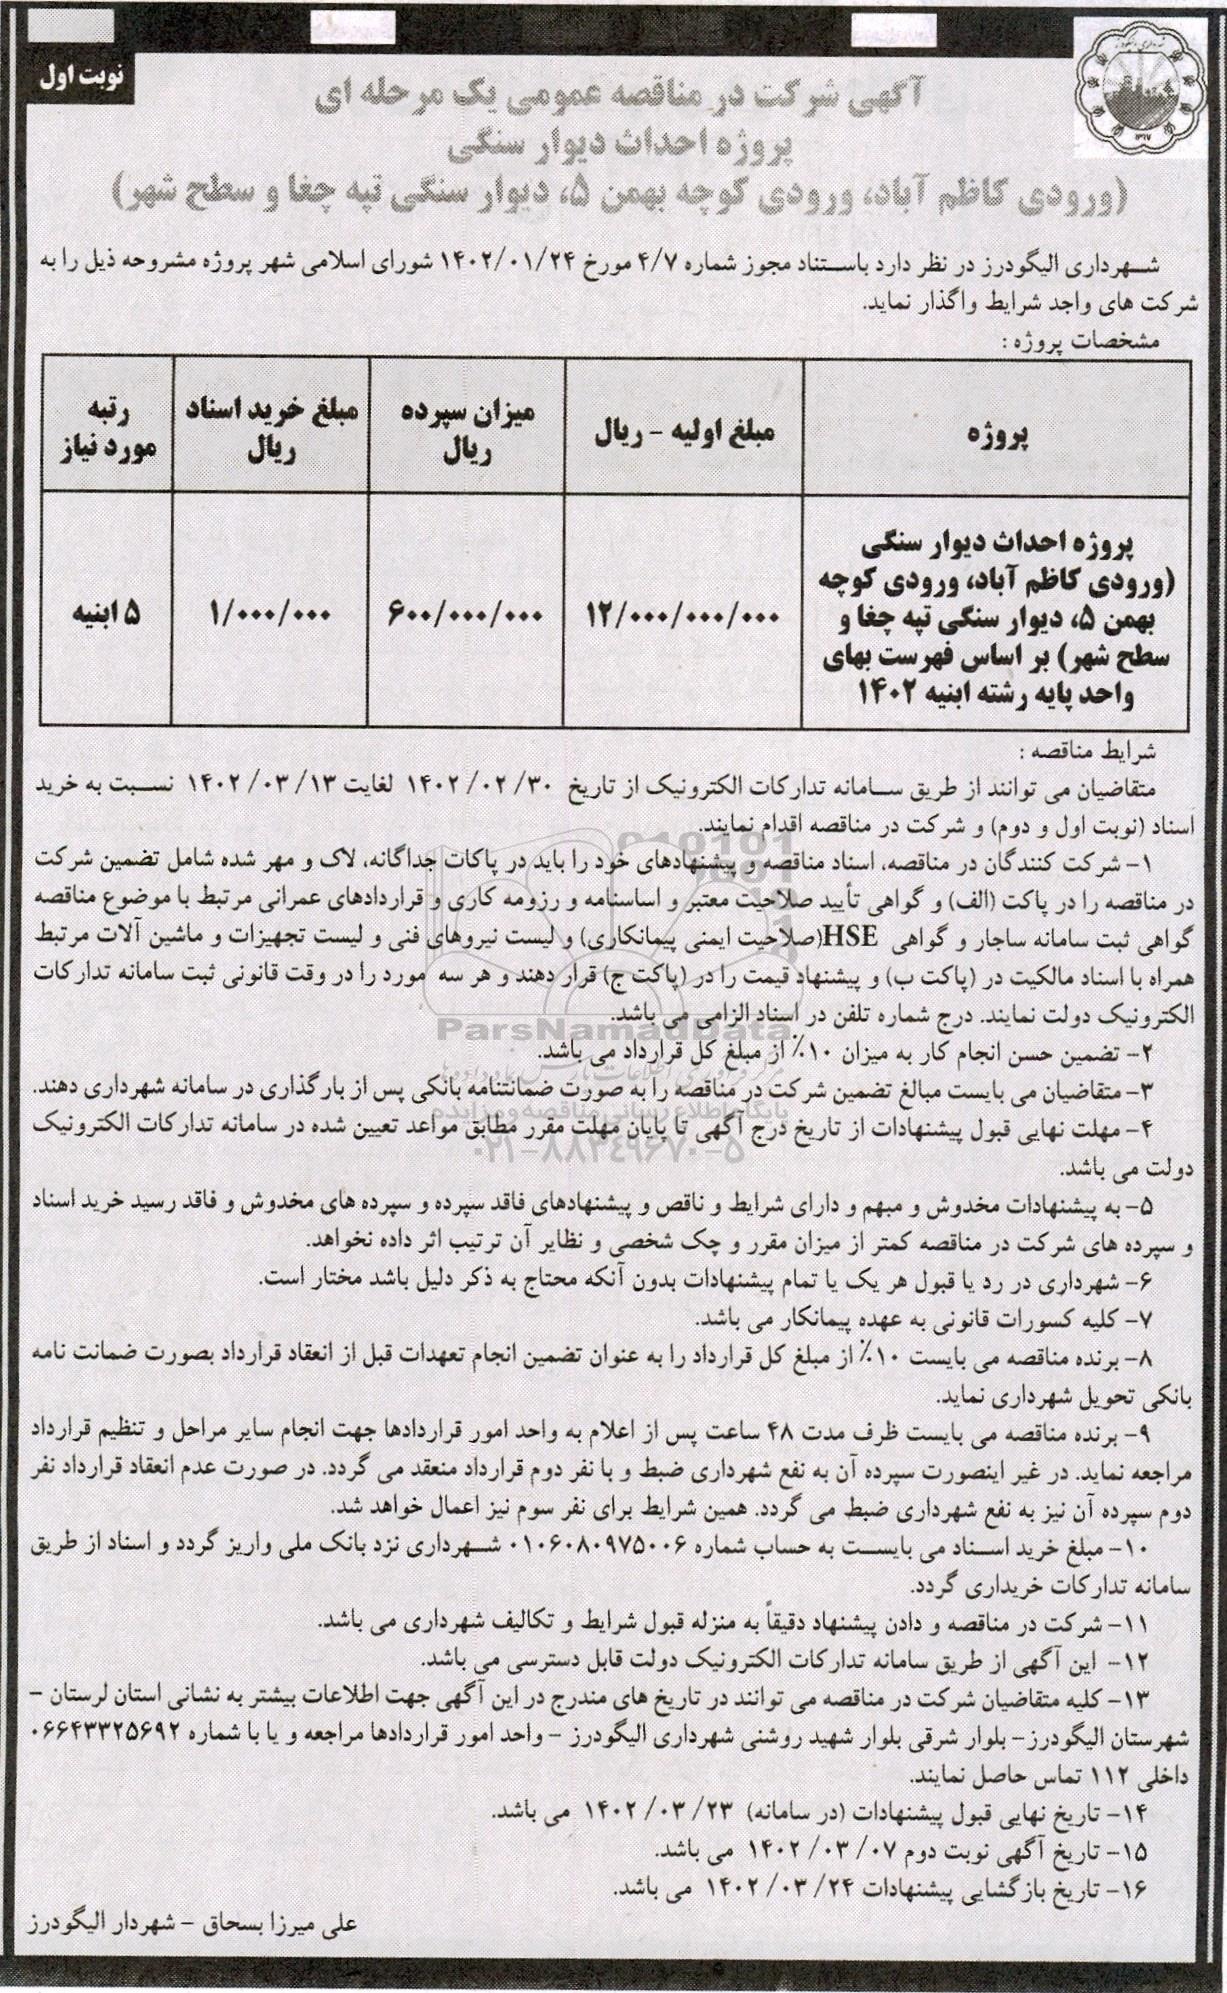 نوبت اول
شهرداری الیگودرز
۱۳۱۷
آگهی شرکت در مناقصه عمومی یک مرحله ای
پروژه احداث دیوار سنگی
(ورودی کاظم آباد، ورودی کوچه بهمن ۵، دیوار سنگی تپه چغا و سطح شهر)
شهرداری الیگودرز در نظر دارد باستناد مجوز شماره ۴/۷ مورخ ۱۴۰۲/۰۱/۲۴ شورای اسلامی شهر پروژه مشروحه ذیل را به
شرکت های واجد شرایط واگذار نماید.
مشخصات پروژه :
پروژه
مبلغ اولیه - ریال
میزان سپرده
ریال
مبلغ خرید اسناد
ریال
رتبه
مورد نیاز
پروژه احداث دیوار سنگی
(ورودی کاظم آباد، ورودی کوچه
بهمن ۵، دیوار سنگی تپه چغا و
سطح شهر) بر اساس فهرست بهای
واحد پایه رشته ابنیه ۱۴۰۲
۱۲/۰۰۰/۰۰۰/۰۰۰
۶۰۰/۰۰۰/۰۰۰
۱/۰۰۰/۰۰۰
۵ ابنیه
شرایط مناقصه :
متقاضیان می توانند از طریق سامانه تدارکات الکترونیک از تاریخ ۳۰/ ۰۲/ ۱۴۰۲ لغایت ۱۳/ ۰۳/ ۱۴۰۲ نسبت به خرید
اسناد (نوبت اول و دوم) و شرکت در مناقصه اقدام نمایند.
۱- شرکت کنندگان در مناقصه، اسناد مناقصه و پیشنهادهای خود را باید در پاکات جداگانه، لاک و مهر شده شامل تضمین شرکت
در مناقصه را در پاکت (الف) و گواهی تأیید صلاحیت معتبر و اساسنامه و رزومه کاری و قراردادهای عمرانی مرتبط با موضوع مناقصه
گواهی ثبت سامانه ساجار و گواهی HSE(صلاحیت ایمنی پیمانکاری) و لیست نیروهای فنی و لیست تجهیزات و ماشین آلات مرتبط
همراه با اسناد مالکیت در (پاکت ب) و پیشنهاد قیمت را در (پاکت ج) قرار دهند و هر سه مورد را در وقت قانونی ثبت سامانه تدارکات
الکترونیک دولت نمایند. درج شماره تلفن در اسناد الزامی می باشد.
ParsNamadData
۲- تضمین حسن انجام کار به میزان ۱۰٪ از مبلغ کل قرارداد می باشد.
۳- متقاضیان می بایست مبالغ تضمین شرکت در مناقصه را به صورت ضمانتنامه بانکی پس از بارگذاری در سامانه شهرداری دهند.
پایگاه اطلاع رسانی مناقصه و مزایده
۴- مهلت نهایی قبول پیشنهادات از تاریخ درج آگهی تا پایان مهلت مقرر مطابق مواعد تعیین شده در سامانه تدارکات الکترونیک
۰۲۱-۸۸۳۴۹۶۷۰-۵
دولت می باشد.
۵- به پیشنهادات مخدوش و مبهم و دارای شرایط و ناقص و پیشنهادهای فاقد سپرده و سپرده های مخدوش و فاقد رسید خرید اسناد
و سپرده های شرکت در مناقصه کمتر از میزان مقرر و چک شخصی و نظایر آن ترتیب اثر داده نخواهد.
۶- شهرداری در رد یا قبول هر یک یا تمام پیشنهادات بدون آنکه محتاج به ذکر دلیل باشد مختار است.
۷- کلیه کسورات قانونی به عهده پیمانکار می باشد.
۸- برنده مناقصه می بایست ۱۰٪ از مبلغ کل قرارداد را به عنوان تضمین انجام تعهدات قبل از انعقاد قرارداد بصورت ضمانت نامه
بانکی تحویل شهرداری نماید.
۹- برنده مناقصه می بایست ظرف مدت ۴۸ ساعت پس از اعلام به واحد امور قراردادها جهت انجام سایر مراحل و تنظیم قرارداد
مراجعه نماید. در غیر اینصورت سپرده آن به نفع شهرداری ضبط و با نفر دوم قرارداد منعقد می گردد. در صورت عدم انعقاد قرارداد نفر
دوم سپرده آن نیز به نفع شهرداری ضبط می گردد. همین شرایط برای نفر سوم نیز اعمال خواهد شد.
۱۰- مبلغ خرید اسناد می بایست به حساب شماره ۰۱۰۶۰۸۰۹۷۵۰۰۶ شهرداری نزد بانک ملی واریز گردد و اسناد از طریق
سامانه تدارکات خریداری گردد.
۱۱- شرکت در مناقصه و دادن پیشنهاد دقیقاً به منزله قبول شرایط و تکالیف شهرداری می باشد.
۱۲- این آگهی از طریق سامانه تدارکات الکترونیک دولت قابل دسترسی می باشد.
۱۳- کلیه متقاضیان شرکت در مناقصه می توانند در تاریخ های مندرج در این آگهی جهت اطلاعات بیشتر به نشانی استان لرستان -
شهرستان الیگودرز- بلوار شرقی بلوار شهید روشنی شهرداری الیگودرز - واحد امور قراردادها مراجعه و یا با شماره ۰۶۶۴۳۳۲۵۶۹۲
داخلی ۱۱۲ تماس حاصل نمایند.
۱۴- تاریخ نهایی قبول پیشنهادات (در سامانه) ۲۳/ ۰۳/ ۱۴۰۲ می باشد.
۱۵- تاریخ آگهی نوبت دوم ۰۷/ ۰۳/ ۱۴۰۲ می باشد.
۱۶- تاریخ بازگشایی پیشنهادات ۲۴/ ۰۳/ ۱۴۰۲ می باشد.
علی میرزا بسحاق - شهردار الیگودرز